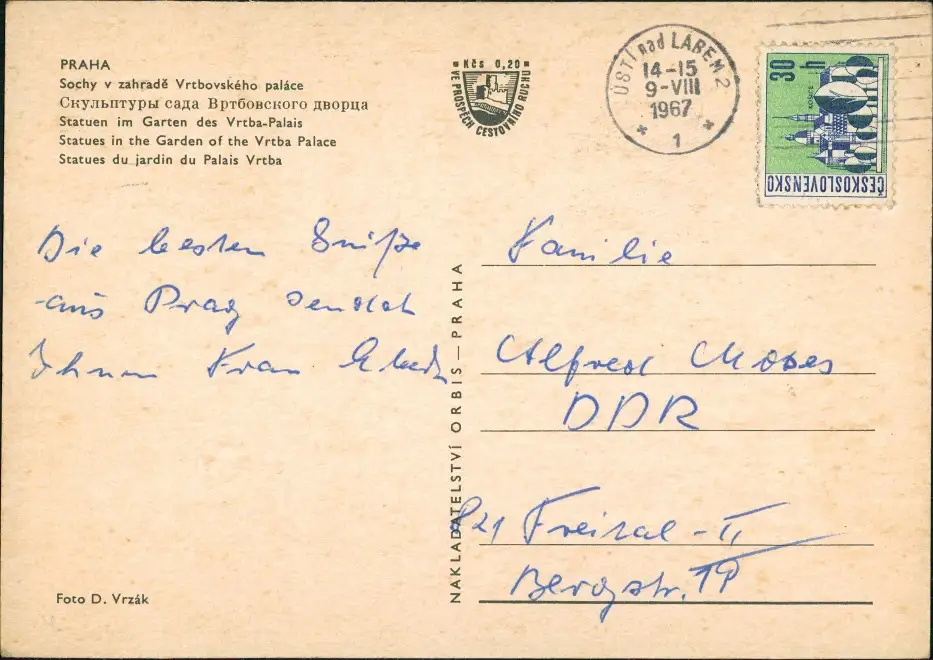 PRAHA
Sochy v zahradě Vrtbovského paláce
Скульптуры сада Вртбовского дворца
Statuen im Garten des Vrtba-Palais
Statues in the Garden of the Vrtba Palace
Statues du jardin du Palais Vrtba
Kčs 0,20
VE PROSPĚCH CESTOVNÍHO RUCHU
ÚSTÍ nad LABEM 2
14-15
9-VIII
1967
1
30 h
KOŠICE
ČESKOSLOVENSKO
Die besten Grüße
aus Prag sendet
Ihnen Frau
NAKLADATELSTVÍ ORBIS — PRAHA
Familie
Alfred Moses
DDR
821 Freital - II
Bergstr. 19
Foto D. Vrzák